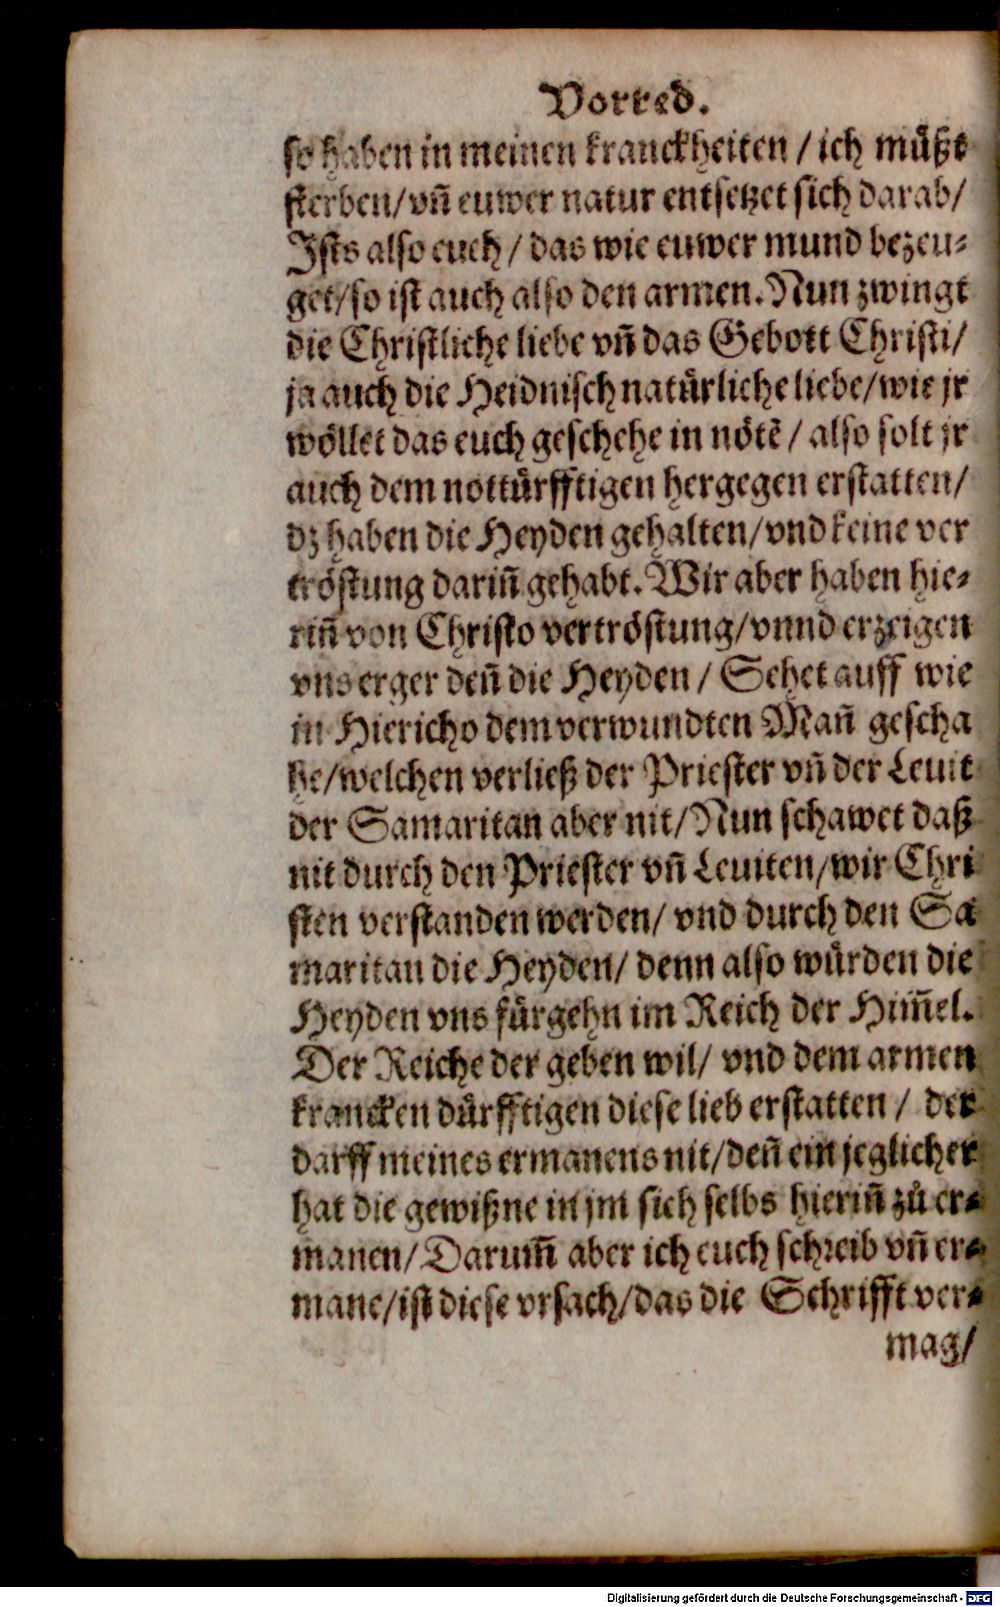 Vorred.
so haben in meinen kranckheiten / ich müßt
sterben/vñ euwer natur entsetzet sich darab/
Ists also euch / das wie euwer mund bezeu-
get/so ist auch also den armen. Nun zwingt
die Christliche liebe vñ das Gebott Christi/
ja auch die Heidnisch natürliche liebe/wie jr
wöllet das euch geschehe in nötẽ / also solt jr
auch dem nottürfftigen hergegen erstatten/
dz haben die Heyden gehalten/vnd keine ver
tröstung dariñ gehabt. Wir aber haben hie-
riñ von Christo vertröstung/vnnd erzeigen
vns erger deñ die Heyden / Sehet auff wie
in Hiericho dem verwundten Mañ gescha
he/welchen verließ der Priester vñ der Leuit
der Samaritan aber nit/Nun schawet daß
nit durch den Priester vñ Leuiten/wir Chri
sten verstanden werden/ vnd durch den Sa
maritan die Heyden/ denn also würden die
Heyden vns fürgehn im Reich der Him̃el.
Der Reiche der geben wil/ vnd dem armen
krancken dürfftigen diese lieb erstatten / der
darff meines ermanens nit/deñ ein jeglicher
hat die gewißne in jm sich selbs hieriñ zů er-
manen/Darum̃ aber ich euch schreib vñ er-
mane/ist diese vrsach/das die Schrifft ver-
mag/
Digitalisierung gefördert durch die Deutsche Forschungsgemeinschaft - DFG